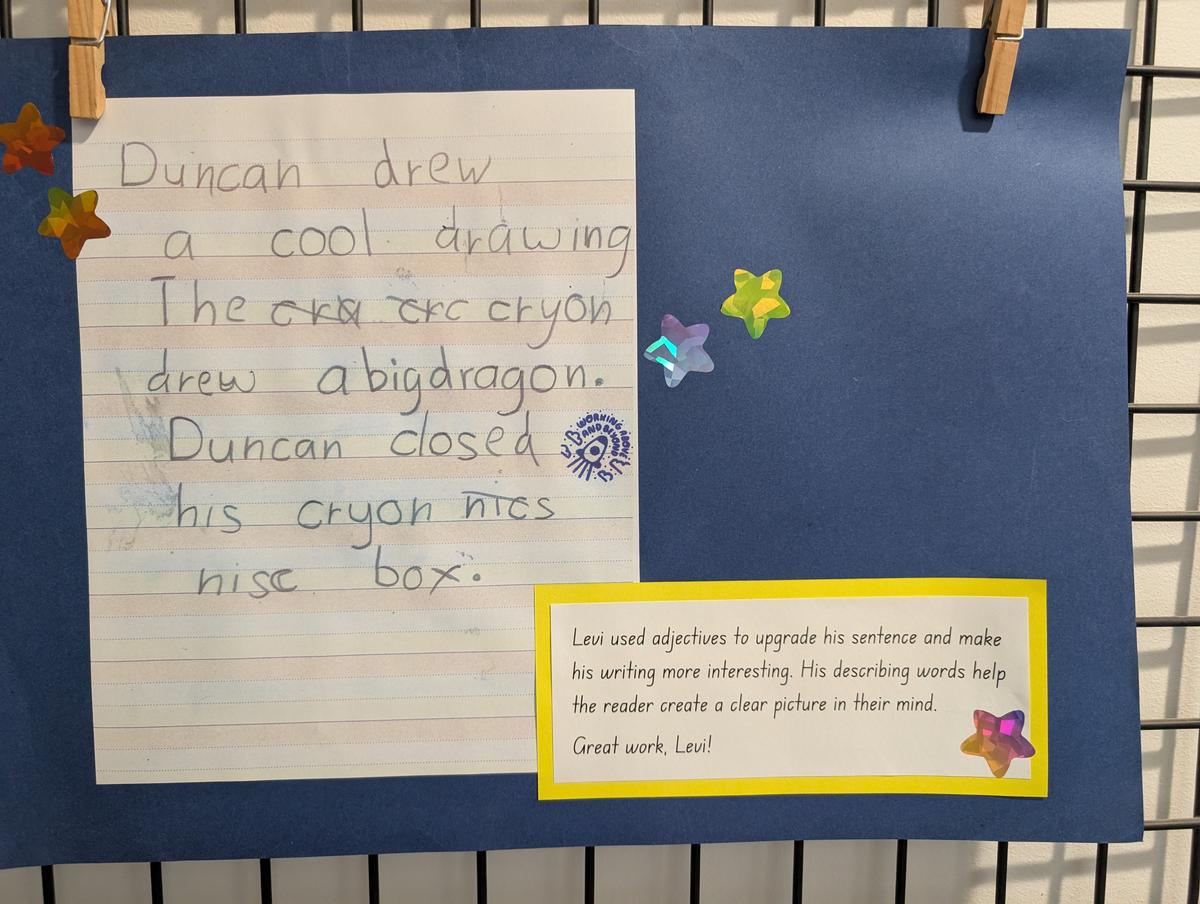 Duncan drew
a cool drawing
The cra crc cryon
drew a big dragon.
Duncan closed
his cryon nics
nisc box.
WORKING ABOVE AND BEYOND
Levi used adjectives to upgrade his sentence and make
his writing more interesting. His describing words help
the reader create a clear picture in their mind.
Great work, Levi!